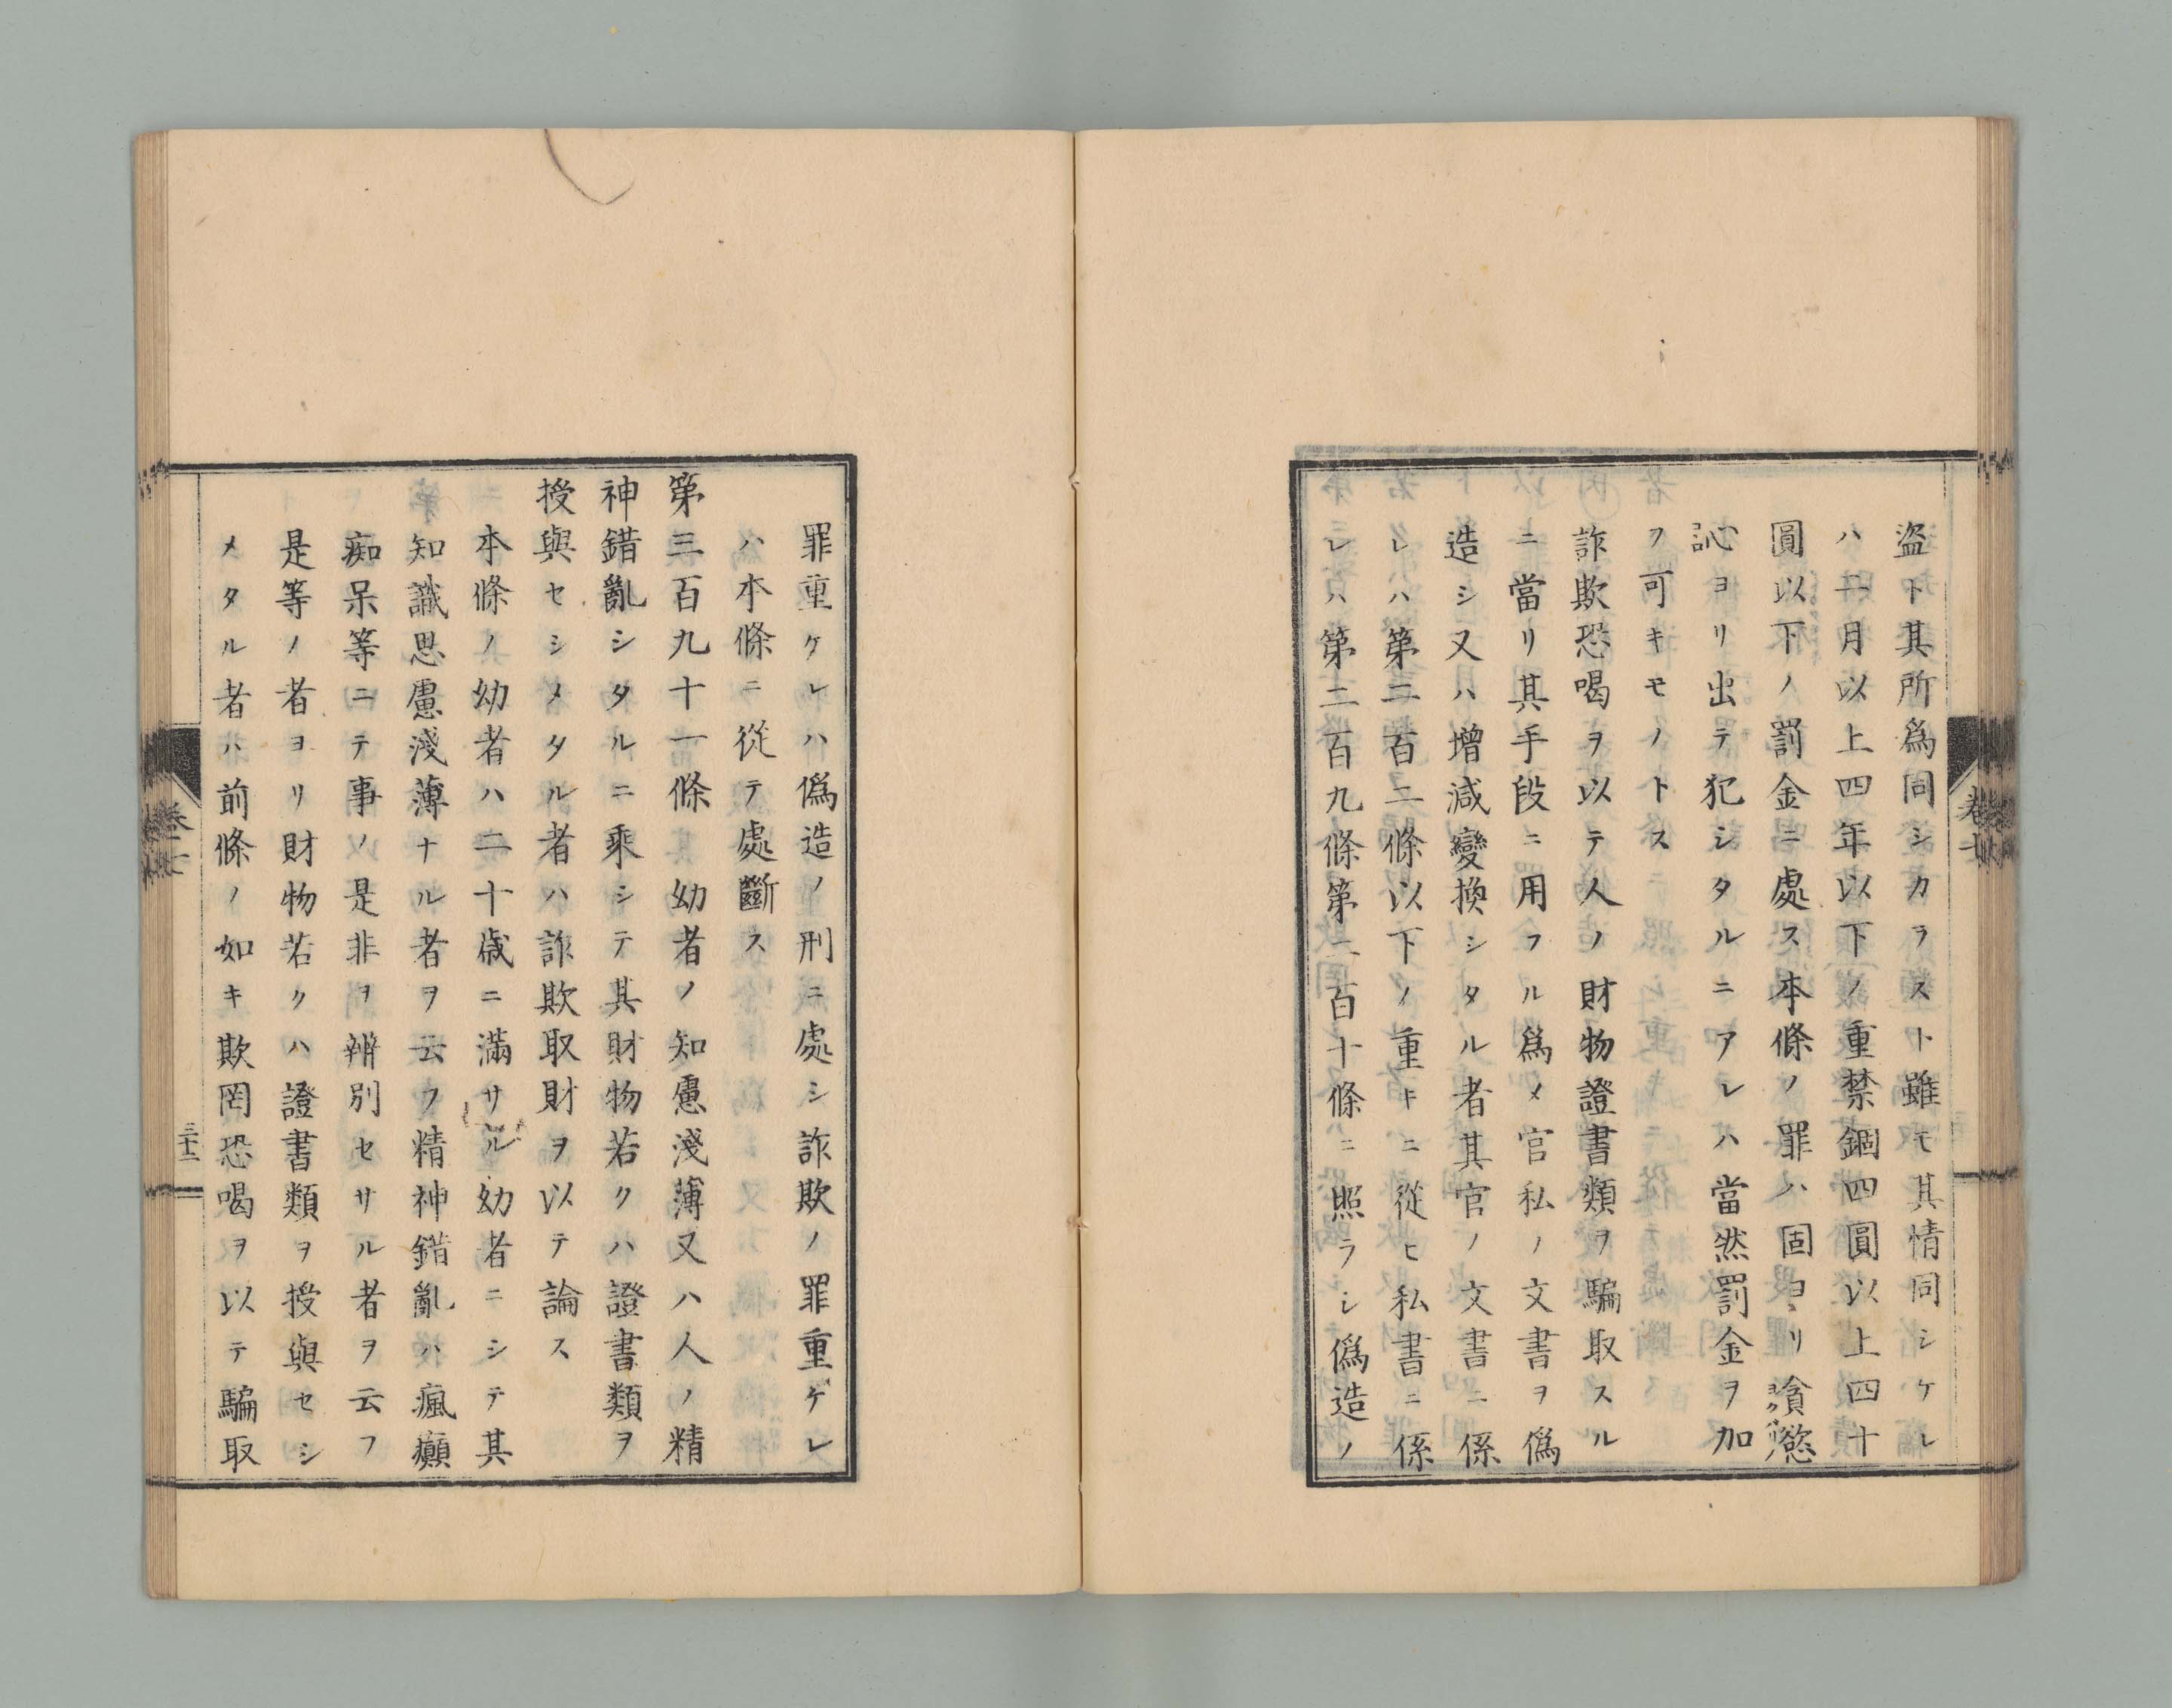 盗ト其所爲同シカラスト雖モ其情同シケレ
ハ二月以上四年以下ノ重禁錮四圓以上四十
圓以下ノ罰金ニ處ス本條ノ罪ハ固ヨリ貪慾
心ヨリ出テ犯シタルニアレハ當然罰金ヲ加
フ可キモノトス
詐欺恐喝ヲ以テ人ノ財物證書類ヲ騙取スル
ニ當リ其手段ニ用フル爲メ官私ノ文書ヲ僞
造シ又ハ增減變換シタル者其官ノ文書ニ係
レハ第二百二條以下ノ重キニ從ヒ私書ニ係
レハ第二百九條第二百十條ニ照ラシ僞造ノ
罪重ケレハ僞造ノ刑ニ處シ詐欺ノ罪重ケレ
ハ本條ニ從テ處斷ス
第三百九十一條 幼者ノ知慮淺薄又ハ人ノ精
神錯亂シタルニ乘シテ其財物若クハ證書類ヲ
授與セシメタル者ハ詐欺取財ヲ以テ論ス
本條ノ幼者ハ二十歳ニ滿サル幼者ニシテ其
知識思慮淺薄ナル者ヲ云フ精神錯亂ハ瘋癲
痴呆等ニテ事ノ是非ヲ辨別セサル者ヲ云フ
是等ノ者ヨリ財物若クハ證書類ヲ授與セシ
メタル者ハ前條ノ如キ欺罔恐喝ヲ以テ騙取
三十二